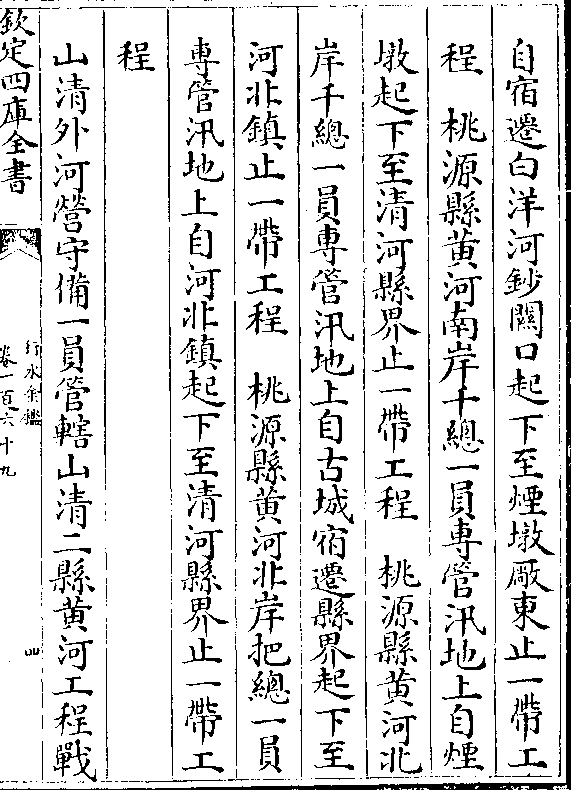 自宿遷白洋河鈔關口起下至煙墩厰東止一帶工
程　桃源縣黄河南岸千總一員專管汛地上自煙
墩起下至清河縣界止一帶工程　桃源縣黄河北
岸千總一員專管汛地上自古城宿遷縣界起下至
河北鎮止一帶工程　桃源縣黄河北岸把總一員
專管汛地上自河北鎮起下至清河縣界止一帶工
程
山清外河營守備一員管轄山清二縣黄河工程戰
欽定四庫全書
行水金鑑
卷一百六十九
四